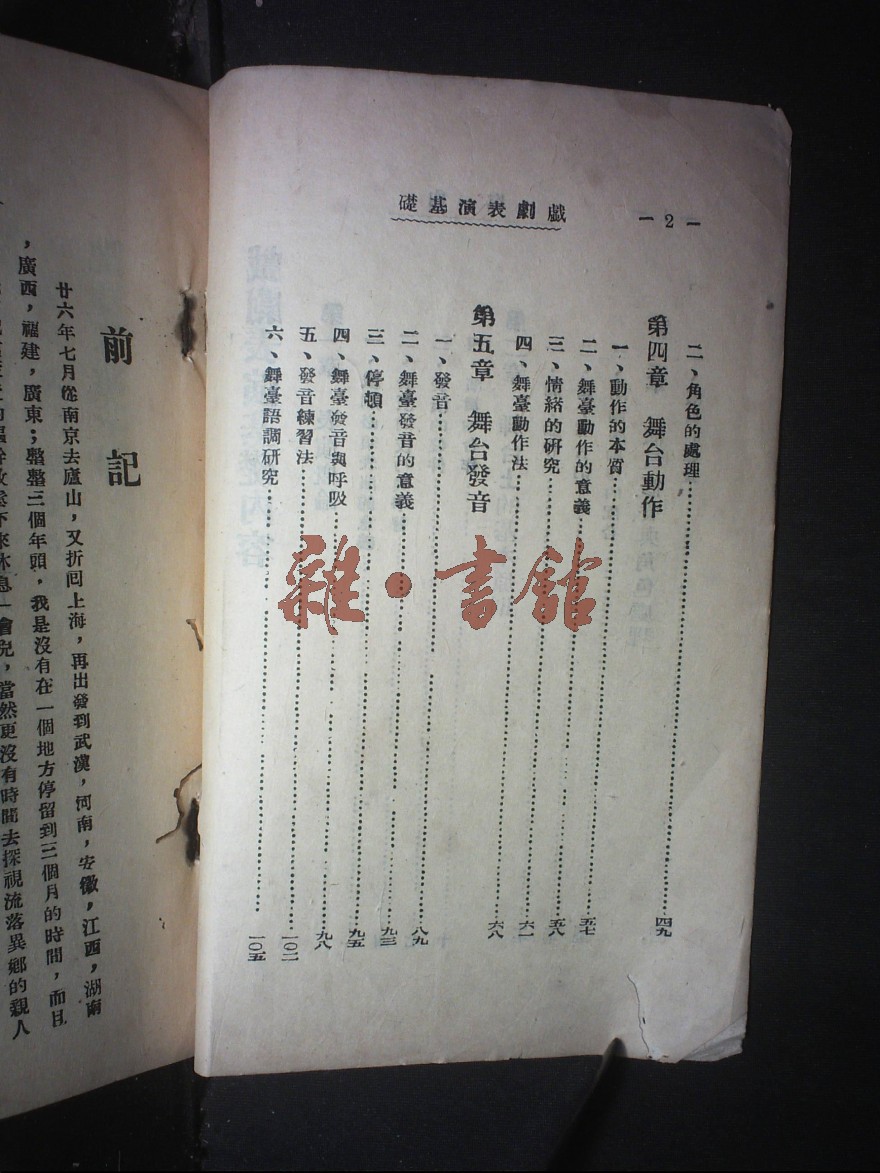 戲劇表演基礎
— 2 —
二、角色的處理……四九
第四章 舞台動作
一、動作的本質……五七
二、舞臺動作的意義……五八
三、情緒的研究……六一
四、舞臺動作法……六八
第五章 舞台發音
一、發音……八九
二、舞臺發音的意義……九三
三、停頓……九五
四、舞臺發音與呼吸……九八
五、發音練習法……一〇二
六、舞臺語調研究……一〇五
雜·書館
前記
廿六年七月從南京去廬山，又折回上海，再出發到武漢，河南，安徽，江西，湖南
，廣西，福建，廣東；整整三個年頭，我是沒有在一個地方停留到三個月的時間，而且
休息一會兒，當然更沒有時間去探視流落異鄉的親人